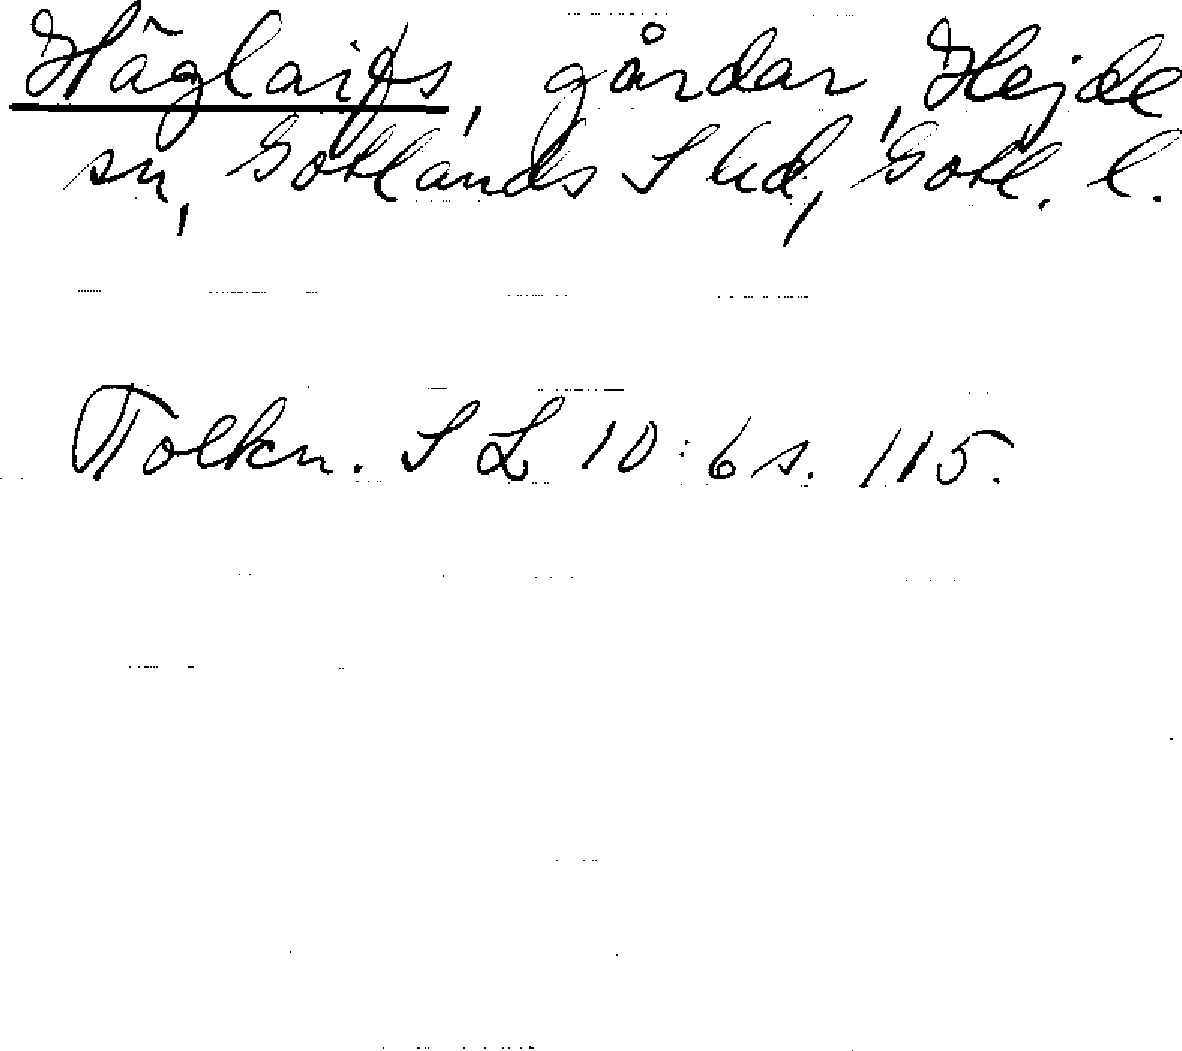 Häglaips, gårdar, Hejde
sn, Gotlands S hd, Gotl. l.
Tolkn. SL 10:6 s. 115.